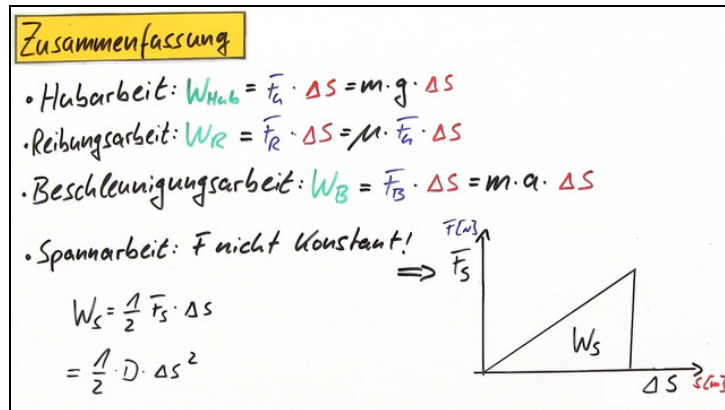 Zusammenfassung
• Hubarbeit: W_Hub = F_G · Δs = m · g · Δs
• Reibungsarbeit: W_R = F_R · Δs = μ · F_G · Δs
• Beschleunigungsarbeit: W_B = F_B · Δs = m · a · Δs
• Spannarbeit: F nicht konstant!
⇒
W_S = 1/2 F_S · Δs
= 1/2 · D · Δs²
F[N]
F_S
W_S
Δs
s[m]